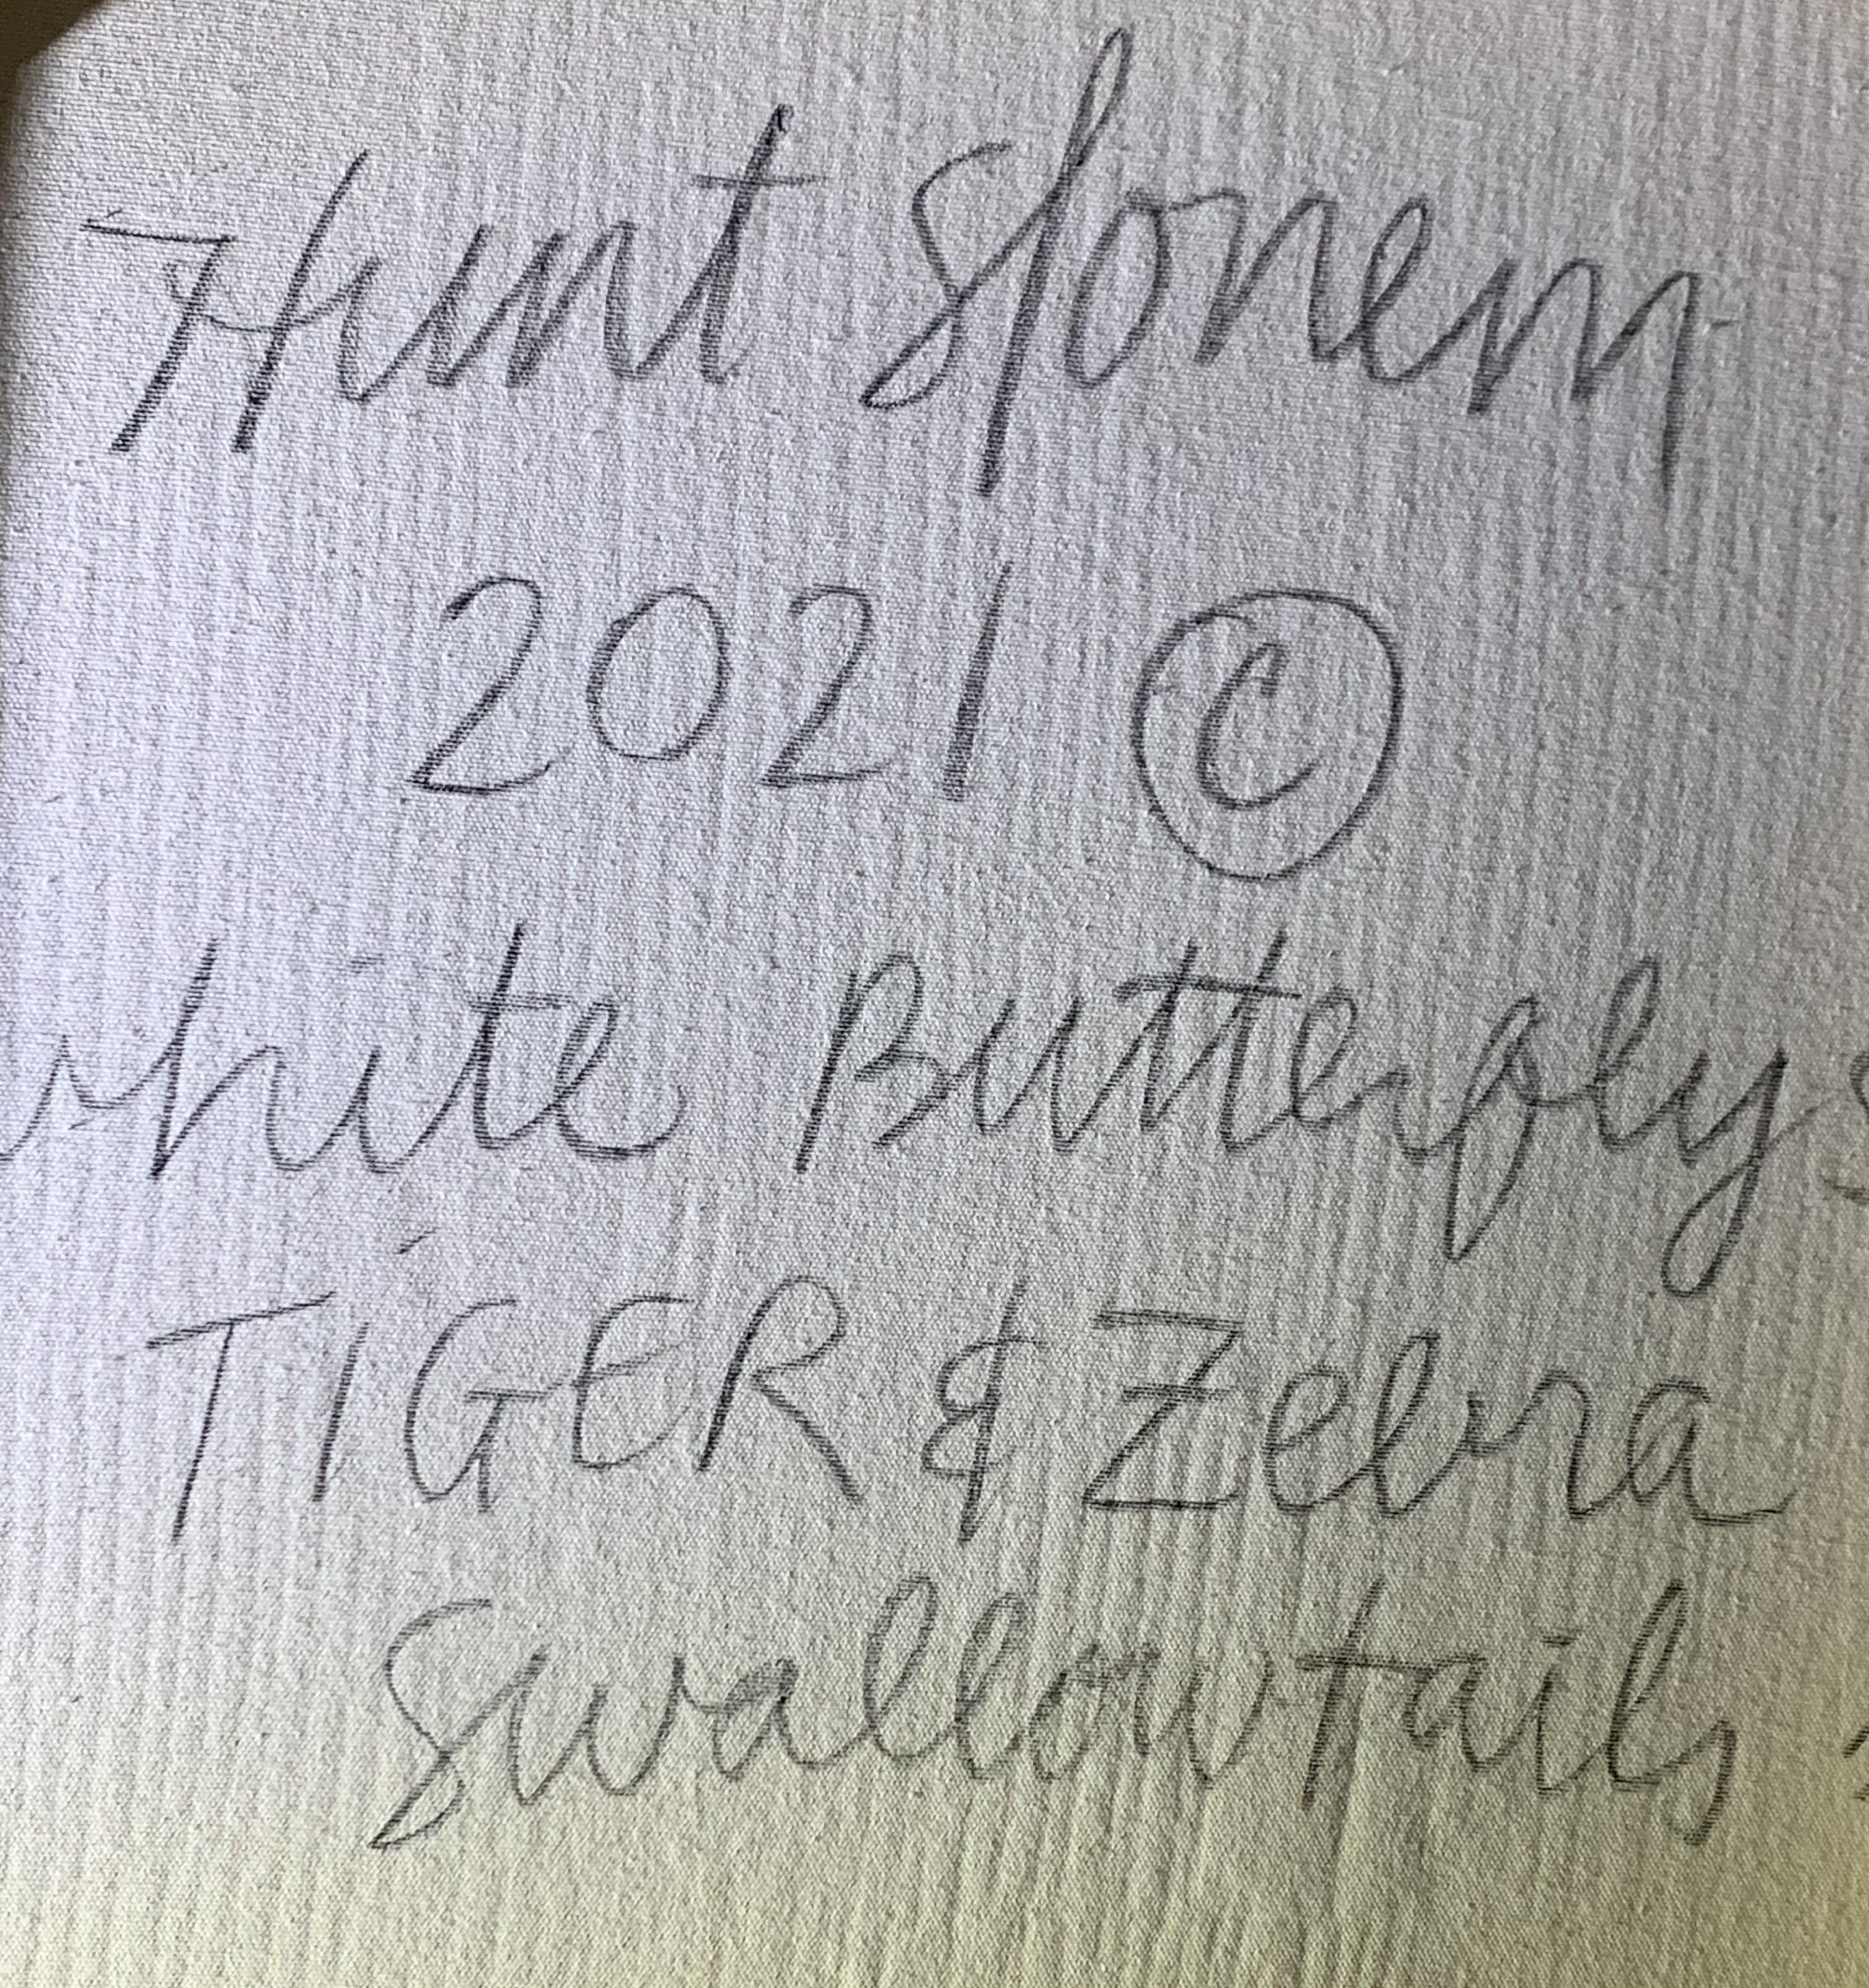 Hunt Slonem
2021 ©
white Butterflys
TIGER & Zebra
Swallowtails